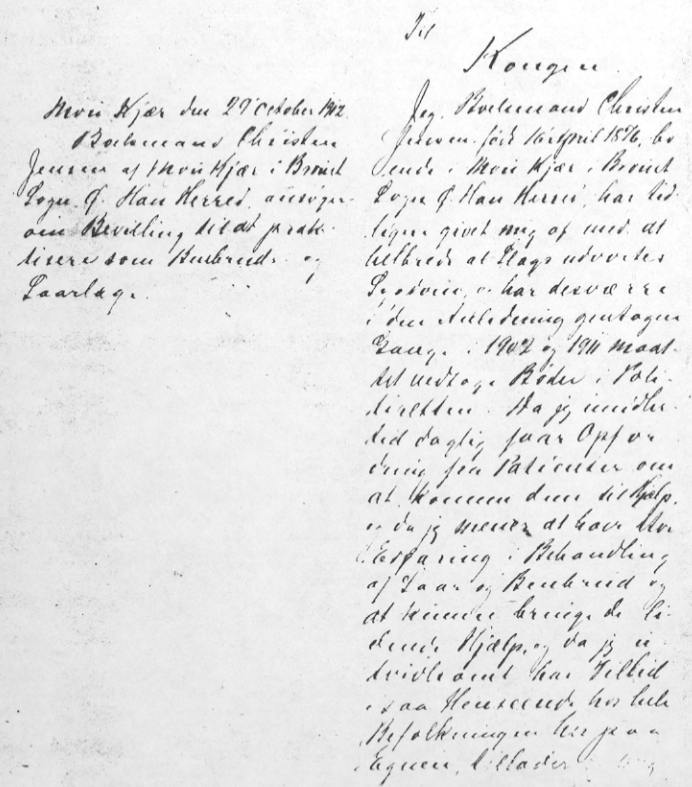 Moin Kjær den 29 October 1912.
Boelsmand Christen
Jensen af Moin Kjær i Brovst
Sogn Ø. Han Herred, ansøger
om Bevilling til at prak-
tisere som Benbruds- og
Saarlæge.
Til
Kongen.
Jeg, Boelsmand Christen
Jensen født 16 April 1876, bo-
ende i Moin Kjær i Brovst
Sogn Ø. Han Herred, har tid-
ligere givet mig af med at
helbrede al Slags udvortes
Sygdomme, og har desværre
i den Anledning gentagne
Gange i 1902 og 1911 maat-
tet vedtage Bøder i Poli-
tiretten. Da jeg imidler-
tid daglig faar Opfor-
dring fra Patienter om
at komme dem til Hjælp,
og da jeg mener at have stor
Erfaring i Behandling
af Saar og Benbrud og
at kunne bringe de li-
dende Hjælp, og da jeg u-
tvivlsomt har Tillid
i saa Henseende hos hele
Befolkningen her paa
Egnen, tillader